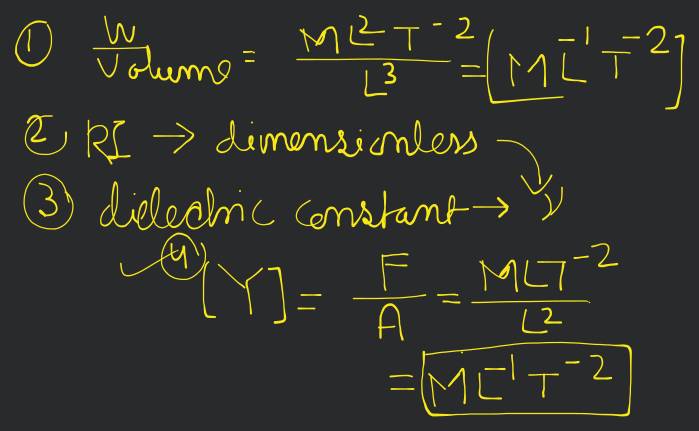 ① W/Volume = ML²T⁻²/L³ = [ML⁻¹T⁻²]
② RI → dimensionless
③ dielectric constant → "
④ [Y] = F/A = MLT⁻²/L²
= ML⁻¹T⁻²